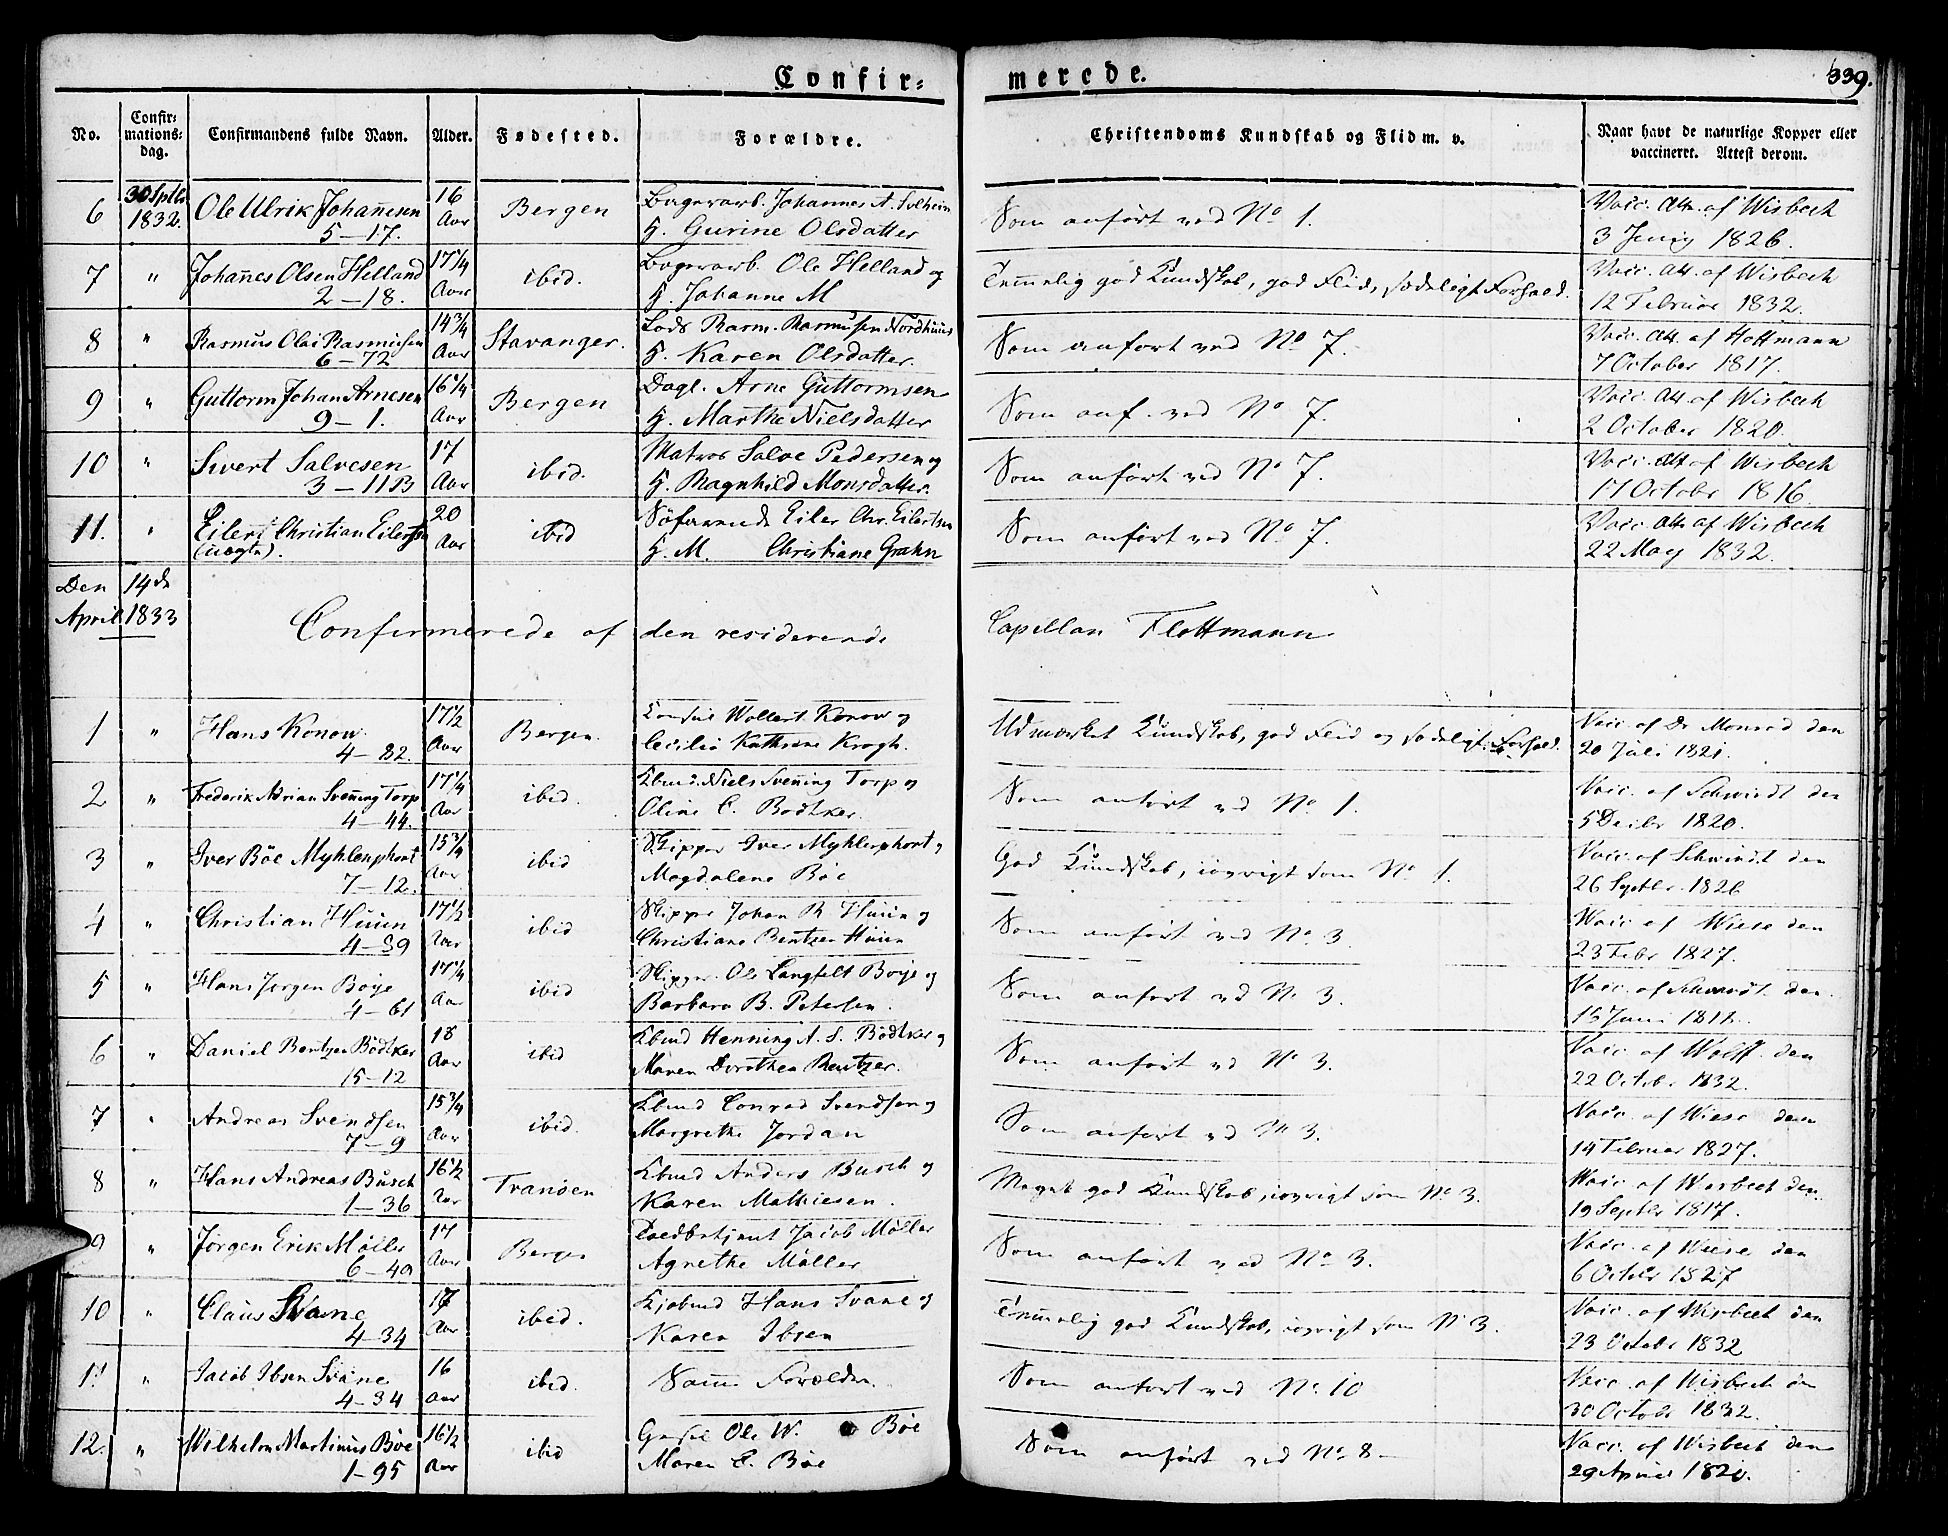 Confir-
merede.
339.
No.
Confir-
mations-
dag.
Confirmandens fulde Navn.
Alder.
Fødested.
Forældre.
Christendoms Kundskab og Flid m. v.
Naar havt de naturlige Kopper eller
vaccineret. Attest derom.
6 30 Septbr 1832. Ole Ulrik Johannesen 5-17. 16 Aar Bergen
Borgerarb. Johannes A. Solheim
H. Gurine Olsdatter
Som anført ved No 1.
Vacc. Att. af Wisbech
3 Juny 1826.
7 " Johannes Olsen Helland 2-18. 17 1/4 Aar ibid.
Borgerarb. Ole Helland og
H. Johanne M
Temmelig god Kundskab, god Flid, sædeligt Forhold.
Vacc. Att. af Wisbech
12 Februar 1832.
8 " Rasmus Olai Rasmusen 6-72 14 3/4 Aar Stavanger.
Lods Rasm. Rasmusen Nordhuus
H. Karen Olsdatter.
Som anført ved No 7.
Vacc. Att. af Hoffmann
7 October 1817.
9 " Guttorm Johan Arnesen 9-1. 16 1/4 Aar Bergen
Dagl. Arne Guttormsen
H. Marthe Nielsdatter
Som anf. ved No 7.
Vacc. Att. af Wisbech
2 October 1820.
10 " Sivert Salvesen 3-11B 17 Aar ibid.
Matros Salve Pedersen og
H. Ragnhild Monsdatter.
Som anført ved No 7.
Vacc. Att af Wisbech
17 Octobr 1816.
11. " Eilert Christian Eilertsen (uægte). 20 Aar ibid
Eiler Chr. Eilertsen
H. M. Christiane Grahn
Som anført ved No 7.
Vacc. Att af Wisbech
22 May 1832.
Den 14de
April 1833
Confirmerede af den residerende Capellan Flottmann
1 " Hans Konow. 4-82. 17 1/2 Aar Bergen.
Consul Wollert Konow og
Cecilia Kathrine Krogh.
Udmærket Kundskab, god Flid og sædeligt Forhold.
Vacc. af Dr Monrad den
20 Juli 1821.
2 " Frederik Adrian Svenning Torp 4-44. 17 1/4 Aar ibid.
Kbmd. Niels Svenning Torp og
Oline C. Bödtker.
Som anført ved No 1.
Vacc. af Schwindt den
5 Decbr 1820.
3 " Iver Böe Myhlenphort 7-12. 15 3/4 Aar ibid
Skipper Iver Myhlenphort og
Magdalene Böe
God Kundskab, iøvrigt som No 1.
Vacc. af Schwindt den
26 Septbr. 1826
4 " Christian Huun 4-39 17 1/2 Aar ibid
Skipper Johan R. Huun og
Christiane Bentzen Huun
Som anført ved No. 3.
Vacc af Wiese den
23 Febr 1827.
5 " Hans Jørgen Böye 4-61 17 1/4 Aar ibid
Skipper Ole Langfelt Boye og
Barbara B. Petersen.
Som anført ved No 3.
Vacc. af Schwindt den
6 " Daniel Bentzen Bödtker 15-12 18 Aar ibid
Kbmd Henning A. S. Bödtker og
Maren Dorothea Bentzer.
Som anført ved No 3.
Vacc. af Wolff den
22 Octobr 1832.
7 " Andreas Svendsen 7-9 15 3/4 Aar ibid.
Kbmd Conrad Svendsen og
Margrethe Jordan
Som anført ved No 3.
Vacc. af Wiese den
14 Februar 1827.
8 " Hans Andreas Busch 1-36 16 1/2 Aar Tranöen
Kbmd Anders Busch og
Karen Mathiesen.
Meget god Kundskab, iøvrigt som No 3.
Vacc af Wesbech den
19 Septbr 1817.
9 " Jørgen Erik Møller 6-49 17 Aar Bergen
Jacob Møller
Agnethe Møller
Som anført ved No 3.
Vacc. af Wiese den
6 Octobr 1827
10 " Claus Svane 4-34 17 Aar ibid.
Kjøbmd Hans Svane og
Karen Ibsen
Temmelig god Kundskab, iøvrigt som No 3.
Vacc. af Wisbech den
23 Octobr 1832
11 " Jacob Ibsen Svane 4-34 16 Aar ibid.
Samme Forældre.
Som anført ved No. 10
Vacc. af Wisbech den
30 Octobr 1832.
12. " Wilhelm Martinus Böe 1-95 16 1/2 Aar ibid
Ole W. Böe
Maren E. Böe
Som anført ved No. 8
Vacc. af Wisbech den
29 April